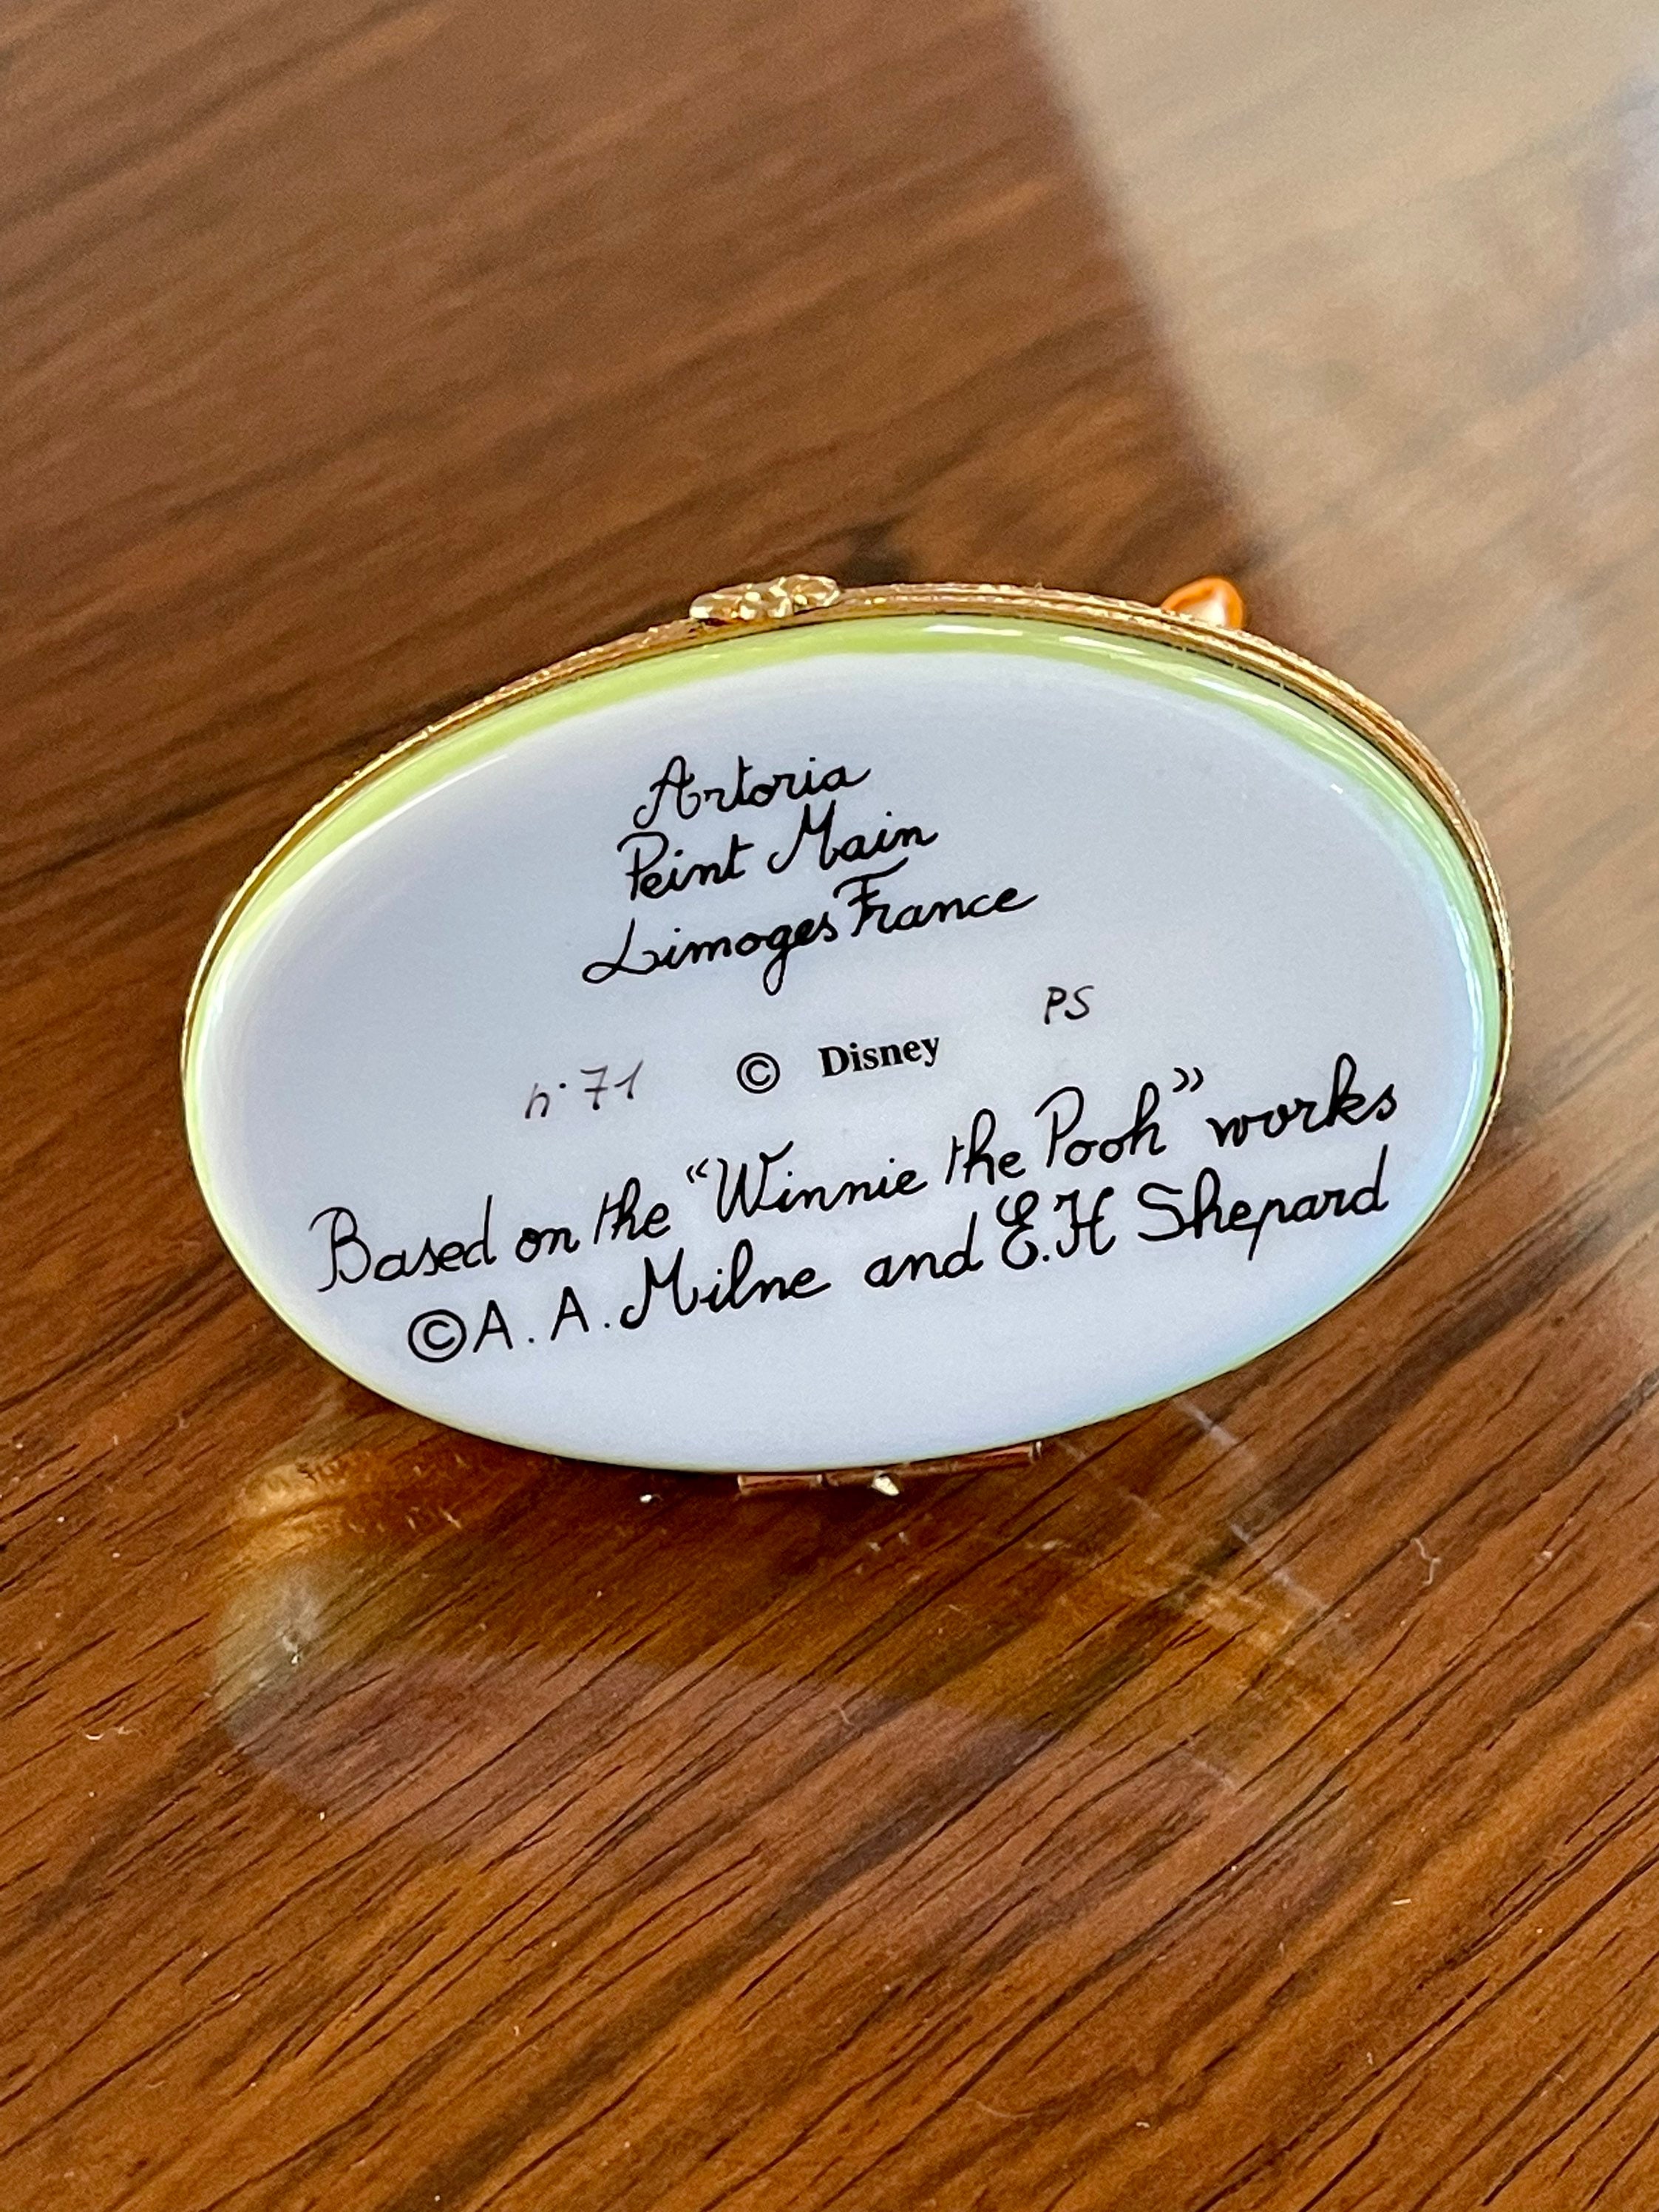 Artoria
Peint Main
Limoges France
PS
n° 71 © Disney
Based on the “Winnie the Pooh” works
© A. A. Milne and E.H Shepard